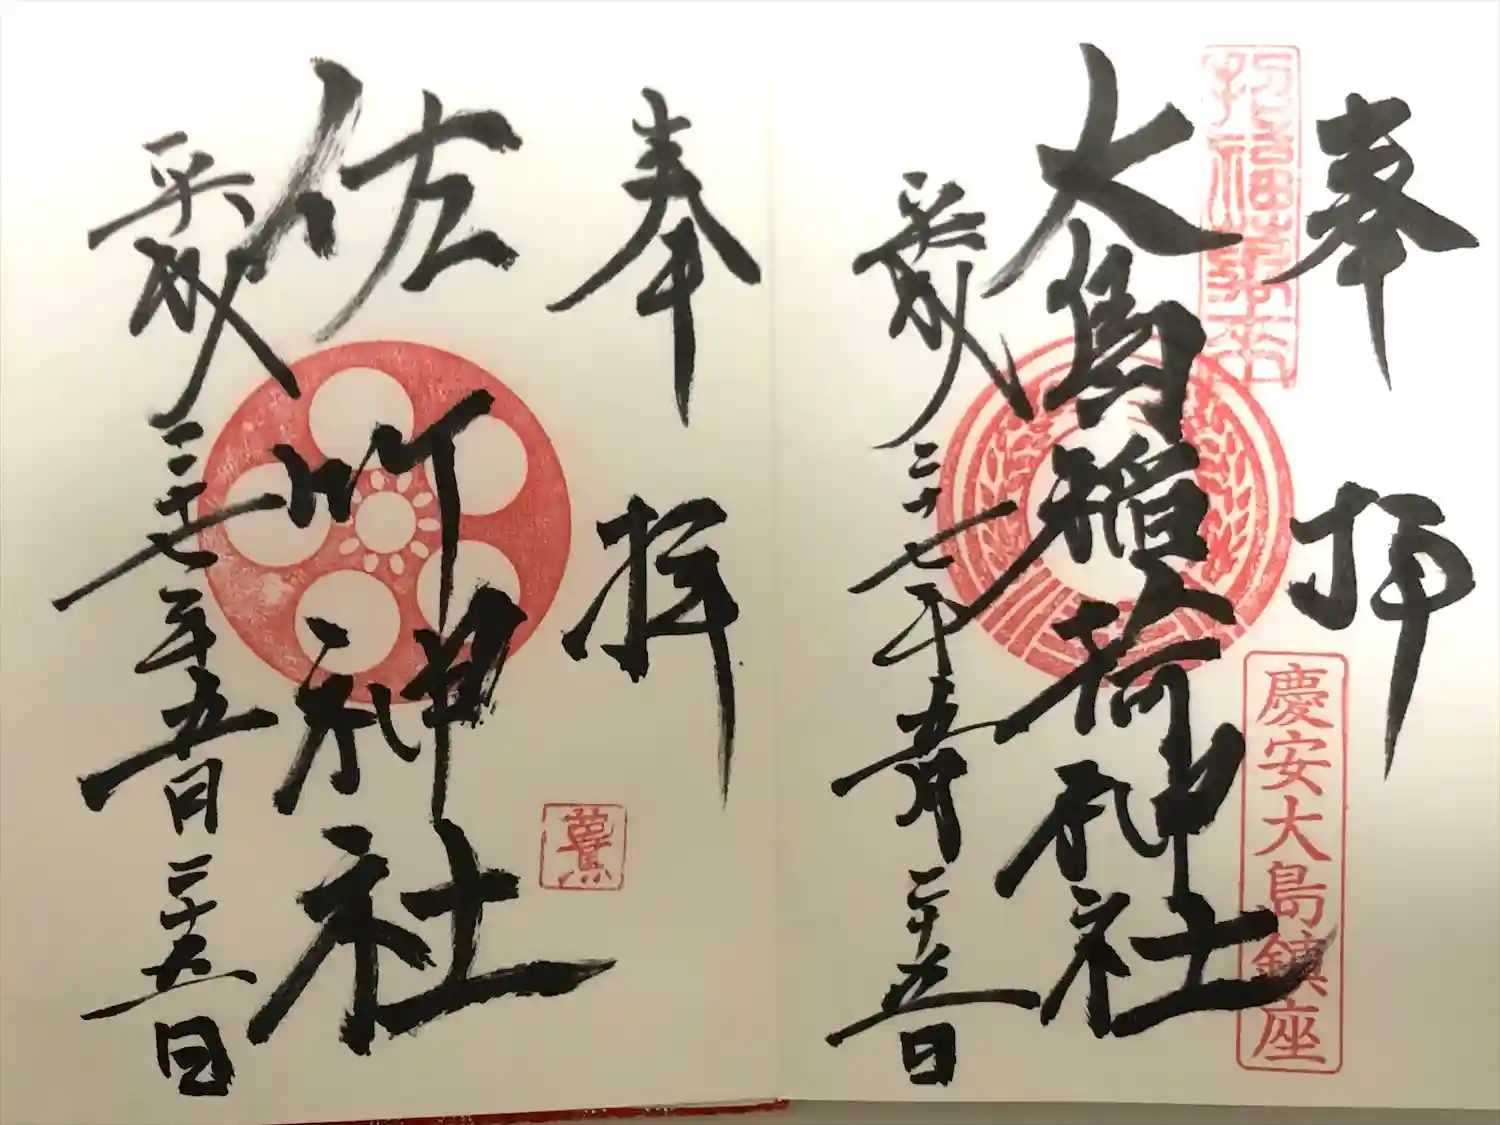 奉拝
大島稲荷神社
慶安大島鎮座
平成二十七年五月二十五日
奉拝
佐竹神社
平成二十七年五月二十五日